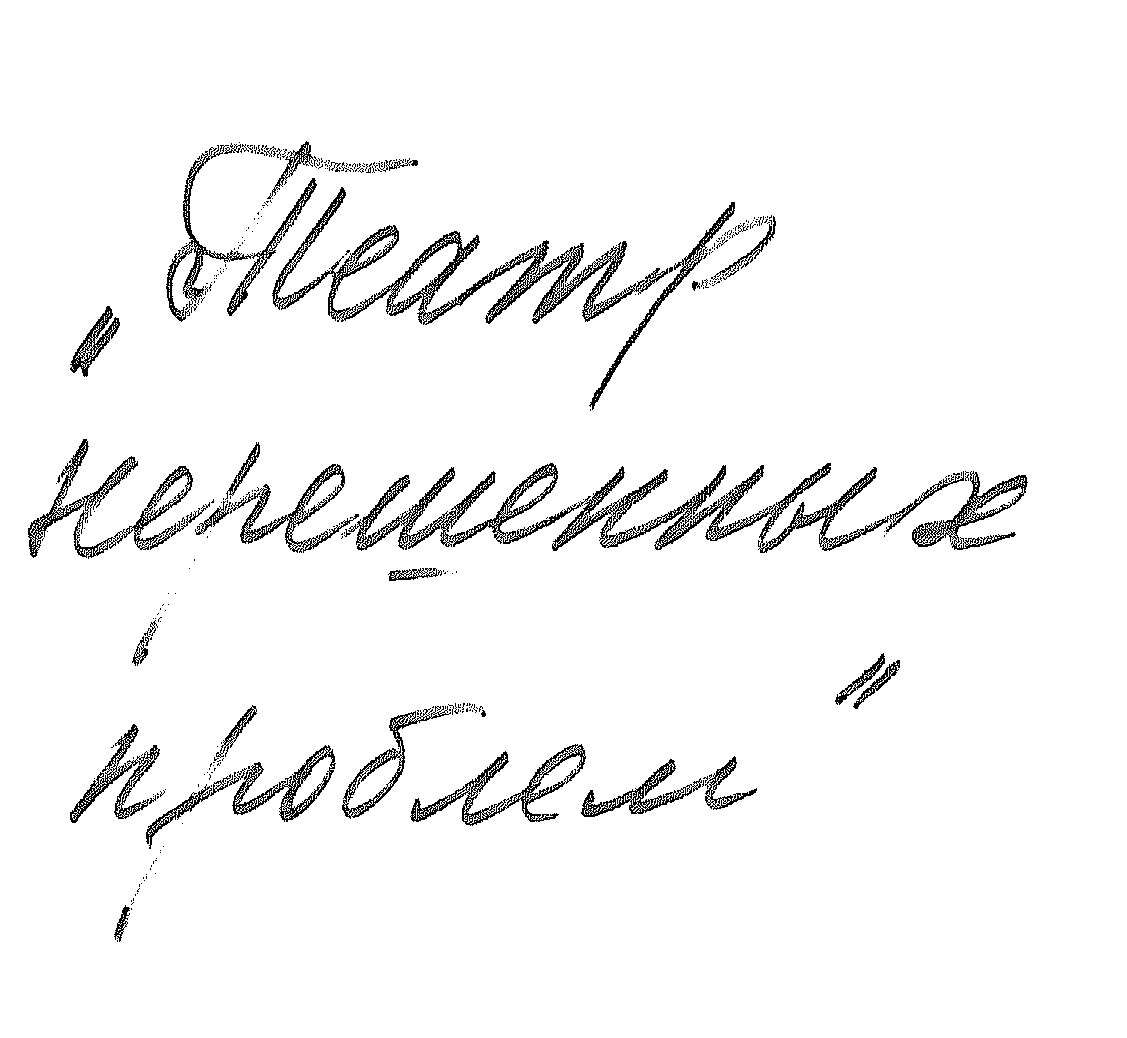 „Театр
нерешенных
проблем"